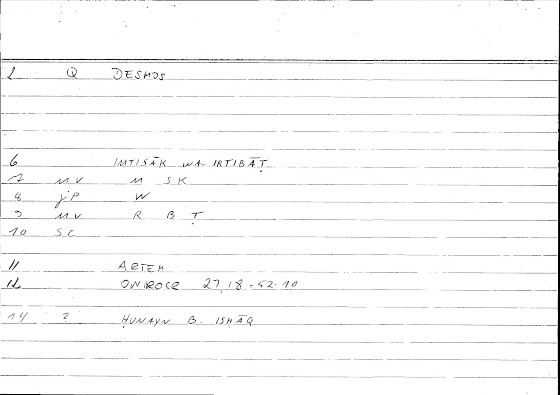 2 Q DESMOS
6 IMTISĀK WA IRTIBĀṬ
7 MV M SK
8 jP W
9 MV R B Ṭ
10 SC
11 ARTEM
12 ONIROCR 27,18 - 52.10
14 2 ḤUNAYN B. ISḤĀQ